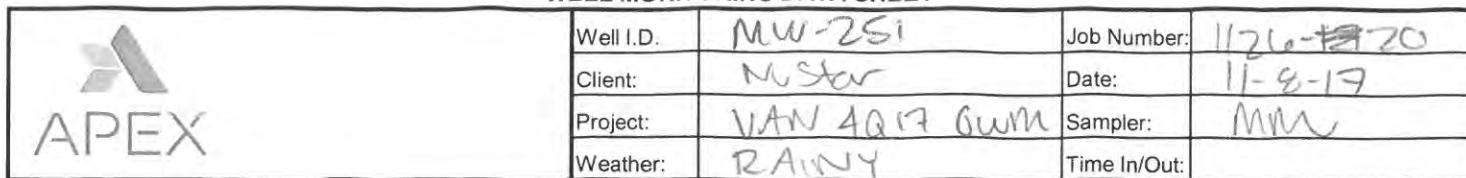 Well I.D. MW-25i Job Number: 1126-20
Client: NuStar Date: 11-8-17
APEX
Project: VAN 4Q17 GWM Sampler: MM
Weather: RAINY Time In/Out: